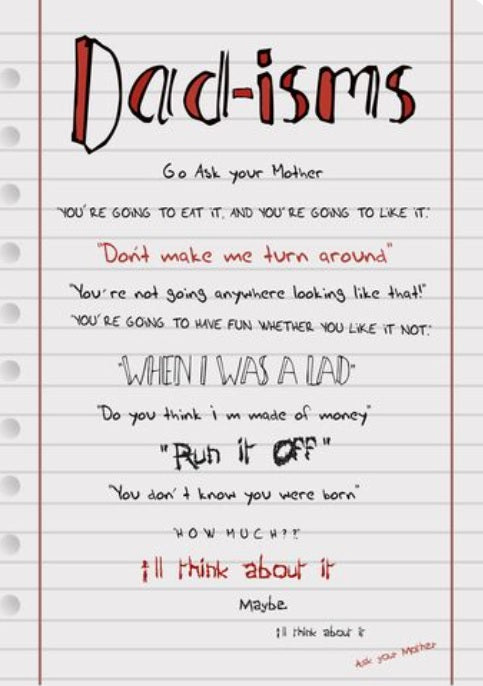 Dad-isms
Go Ask your Mother
"YOU'RE GOING TO EAT IT, AND YOU'RE GOING TO LIKE IT."
"Don't make me turn around"
"You're not going anywhere looking like that!"
"YOU'RE GOING TO HAVE FUN WHETHER YOU LIKE IT NOT."
"WHEN I WAS A LAD"
"Do you think i m made of money"
"Run it OFF"
"You don't know you were born"
"HOW MUCH??"
i'll think about it
Maybe
I'll think about it
Ask your Mother